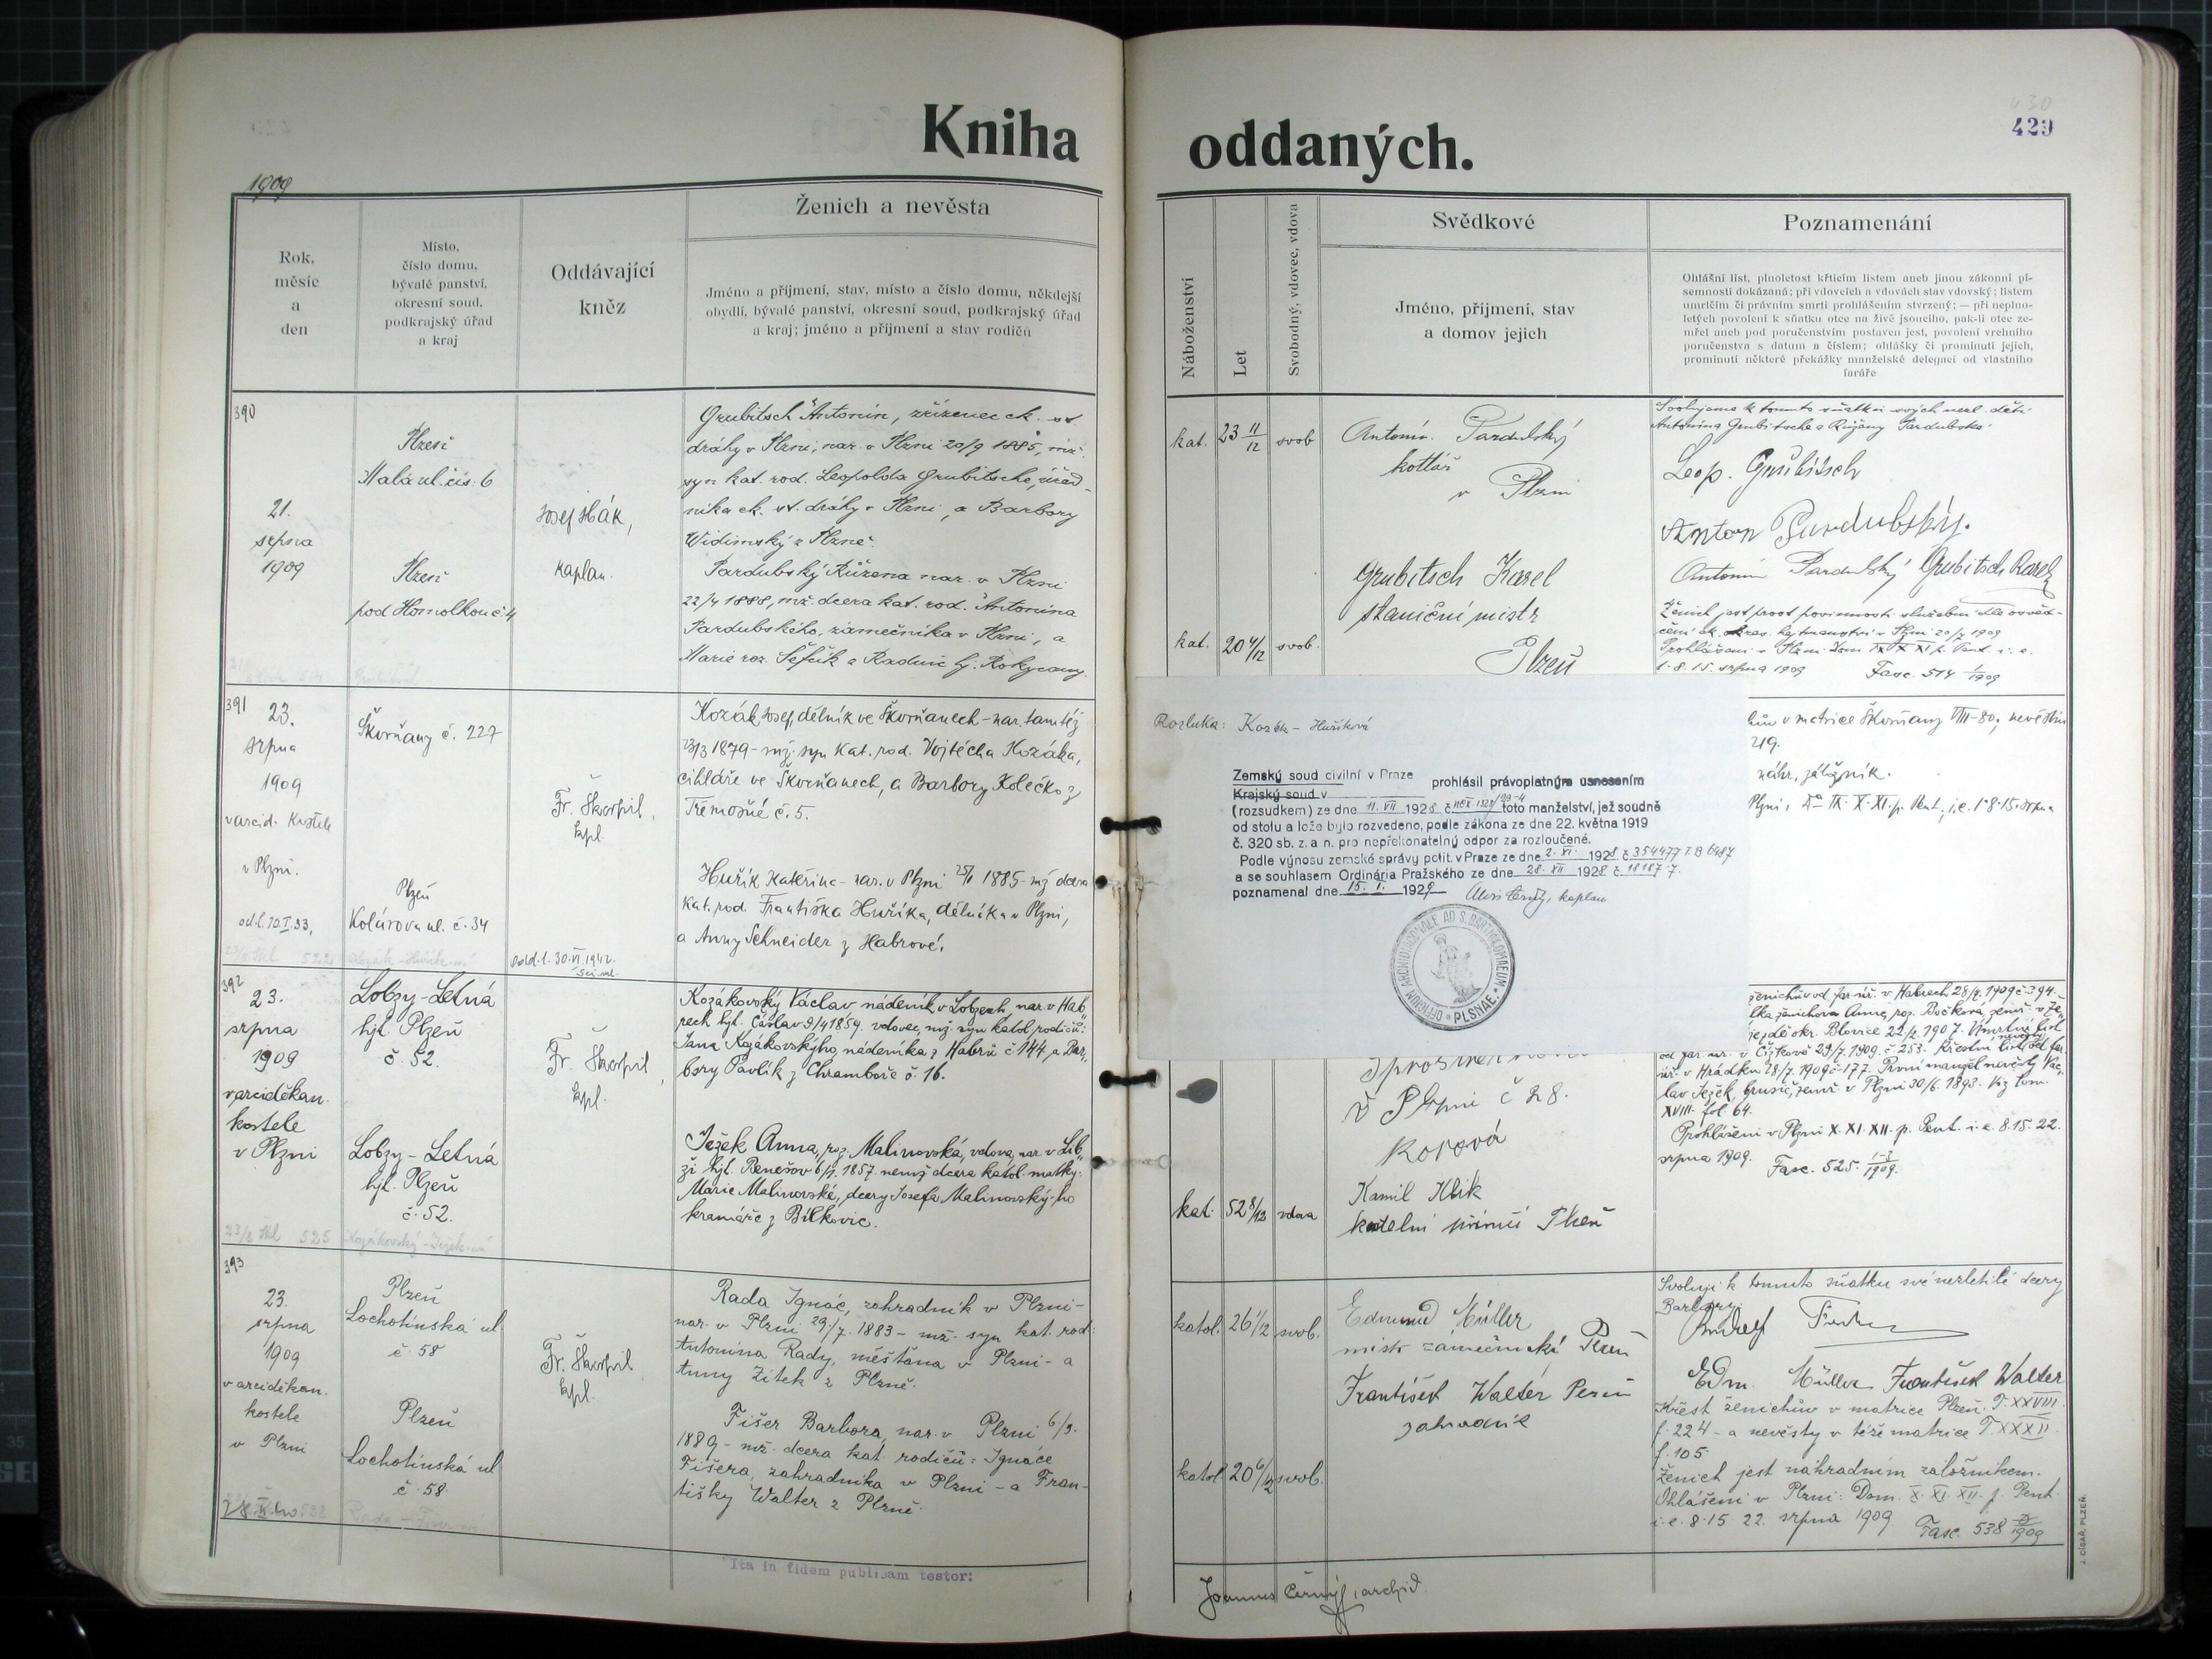 Kniha
oddaných.
430
429
1909
Rok,
měsíc
a
den
Místo,
číslo domu,
bývalé panství,
okresní soud,
podkrajský úřad
a kraj
Oddávající
kněz
Ženich a nevěsta
Jméno a příjmení, stav, místo a číslo domu, někdejší
obydlí, bývalé panství, okresní soud, podkrajský úřad
a kraj; jméno a příjmení a stav rodičů
Náboženství
Let
Svobodný, vdovec, vdova
Svědkové
Jméno, příjmení, stav
a domov jejich
Poznamenání
Ohlášní list, plnoletost křticím listem aneb jinou zákonní pí-
semností dokázaná; při vdovcích a vdovách stav vdovský; listem
umrtčím či právním smrti prohlášením stvrzený; — při neplno-
letých povolení k sňatku otce na živě jsoucího, pak-li otec ze-
mřel aneb pod poručenstvím postaven jest, povolení vrchního
poručenstva s datum a číslem; ohlášky či prominutí jejich,
prominutí některé překážky manželské delegací od vlastního
faráře
390
21.
srpna
1909
Plzeň
Malá ul. čís. 6
Plzeň
pod Homolkou č. 4
Josef Hák,
kaplan.
Grubitsch Antonín, zřízenec ck. st.
dráhy v Plzni, nar. v Plzni 20/9 1885, mž.
syn kat. rod. Leopolda Grubitsche, úřed-
níka ck. st. dráhy v Plzni, a Barbory
Widimský z Plzně.
Pardubský Růžena nar. v Plzni
22/4 1888, mž. dcera kat. rod. Antonína
Pardubského, zámečníka v Plzni, a
Marie roz. Šefčík z Raduně hj. Rokycany.
kat. 23 11/12 svob
kat. 20 4/12 svob.
Antonín Pardubský
kotlář
v Plzni
Grubitsch Karel
staniční mistr
Plzeň
Svolujeme k tomuto sňatku svých nezl. dětí
Antonína Grubitsche a Růženy Pardubské
Leop. Grubitsch
Anton Pardubský.
Antonín Pardubský Grubitsch Karel
Ženich jest prost povinnosti služební dle osvěd-
čení ck. okres. hejtmanství v Plzni 20/7 1909
Prohlášeni v Plzni Dom IX X XI p. Pent. i. e.
1. 8. 15. srpna 1909 Fasc. 514 1/1909
391
23.
srpna
1909
v arcid. kostele
v Plzni.
Škvrňany č. 227
Plzeň
Kolárova ul. č. 34
Fr. Škorpil,
kpl.
Kozák Josef, dělník ve Škvrňanech - nar. tamtéž
23/3 1879 - mž. syn kat. rod. Vojtěcha Kozáka,
cihláře ve Škvrňanech, a Barbory Kolečko z
Třemošné č. 5.
Huřík Kateřina - nar. v Plzni 25/11 1885 - mž dcera
kat. rod. Františka Huříka, dělníka v Plzni,
a Anny Schneider z Habrové.
Rozluka: Kozák - Huříková
Zemský soud civilní v Praze prohlásil právoplatným usnesením
Krajský soud v
(rozsudkem) ze dne 11. VII 1928 toto manželství, jež soudně
od stolu a lože bylo rozvedeno, podle zákona ze dne 22. května 1919
č. 320 sb. z. a n. pro nepřekonatelný odpor za rozloučené.
Podle výnosu zemské správy polit. v Praze ze dne 2. XI. 1928 č 354477
a se souhlasem Ordinária Pražského ze dne 28. XII 1928 č 18187
poznamenal dne 15. I. 1929 kaplan
OFFICIUM ARCHIDIACONALE AD S. BARTHOLOMAEUM PLSNAE.
v matrice Škvrňany VIII-80, nevěstin
219.
náhr. záložník.
Plzni, Dom IX. X. XI. p. Pent. i. e. 1. 8. 15. srpna
392
23.
srpna
1909
v arciděkan.
kostele
v Plzni
Lobzy-Letná
hjt. Plzeň
č. 52.
Lobzy-Letná
hjt. Plzeň
č. 52.
Fr. Škorpil,
kpl.
Kozákovský Václav nádeník v Lobzech, nar. v Hab-
rech hjt. Čáslav 9/4 1859. vdovec, mž. syn katol. rodičů:
Jana Kozákovského, nádeníka z Habrů č 144, a Bar-
bory Pavlík z Chramboře č. 16.
Ježek Anna, roz. Malinovská, vdova, nar. v Lib-
ži hjt. Benešov 6/1. 1857 nemž dcera katol. matky:
Marie Malinovské, dcery Josefa Malinovského
kramáře z Bílkovic.
kat. 52 8/12 vdova
v Plzni č 28.
Kamil Klik
kostelní příručí Plzeň
ženichův od far. úř. v Habrech 28/7. 1909 č 394.
Křestní list od far.
úř. v Hrádku 28/7. 1909 č 177. První manžel nevěsty Vác-
lav Ježek, brusič, zemř. v Plzni 30/6. 1893. Viz tom.
XVIII. fol. 64.
Prohlášeni v Plzni X. XI. XII. p. Pent. i. e. 8. 15. 22.
srpna 1909. Fasc. 525. 1-3/1909.
393
23.
srpna
1909
v arciděkan.
kostele
v Plzni
Plzeň
Lochotínská ul
č. 58
Plzeň
Lochotínská ul
č. 58.
Fr. Škorpil
kpl.
Rada Ignác, zahradník v Plzni -
nar. v Plzni 29./7. 1883 - mž. syn kat. rod.
Antonína Rady, měšťana v Plzni - a
Anny Zítek z Plzně.
Fišer Barbora, nar. v Plzni 6/3.
1889 - mž. dcera kat. rodičů: Ignáce
Fišera, zahradníka v Plzni - a Fran-
tišky Walter z Plzně.
katol. 26 1/12 svob.
katol 20 6/12 svob.
Edmund Müller
mistr zámečnický Plzeň
František Walter Plzeň
zahradník
Svoluji k tomuto sňatku své nezletilé dcery
Barbory.
Edm. Müller František Walter
Křest ženichův v matrice Plzeň. T. XXVIII.
f. 224 - a nevěsty v téže matrice T. XXXII.
f. 105
Ženich jest náhradním záložníkem.
Ohlášeni v Plzni: Dom. X. XI. XII. p. Pent.
i. e. 8. 15. 22. srpna 1909. Fasc. 538
Ita in fidem publicam testor:
Joannes Černý, archid.
J. CÍSAŘ, PLZEŇ.